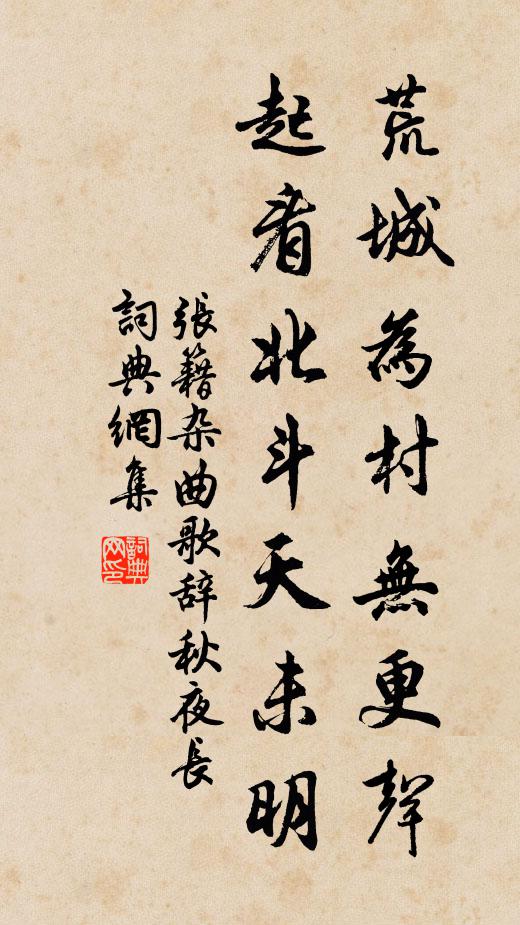 荒城為村無更聲
起看北斗天未明
張籍杂曲歌辞秋夜長
詞典網集
詞典
网印